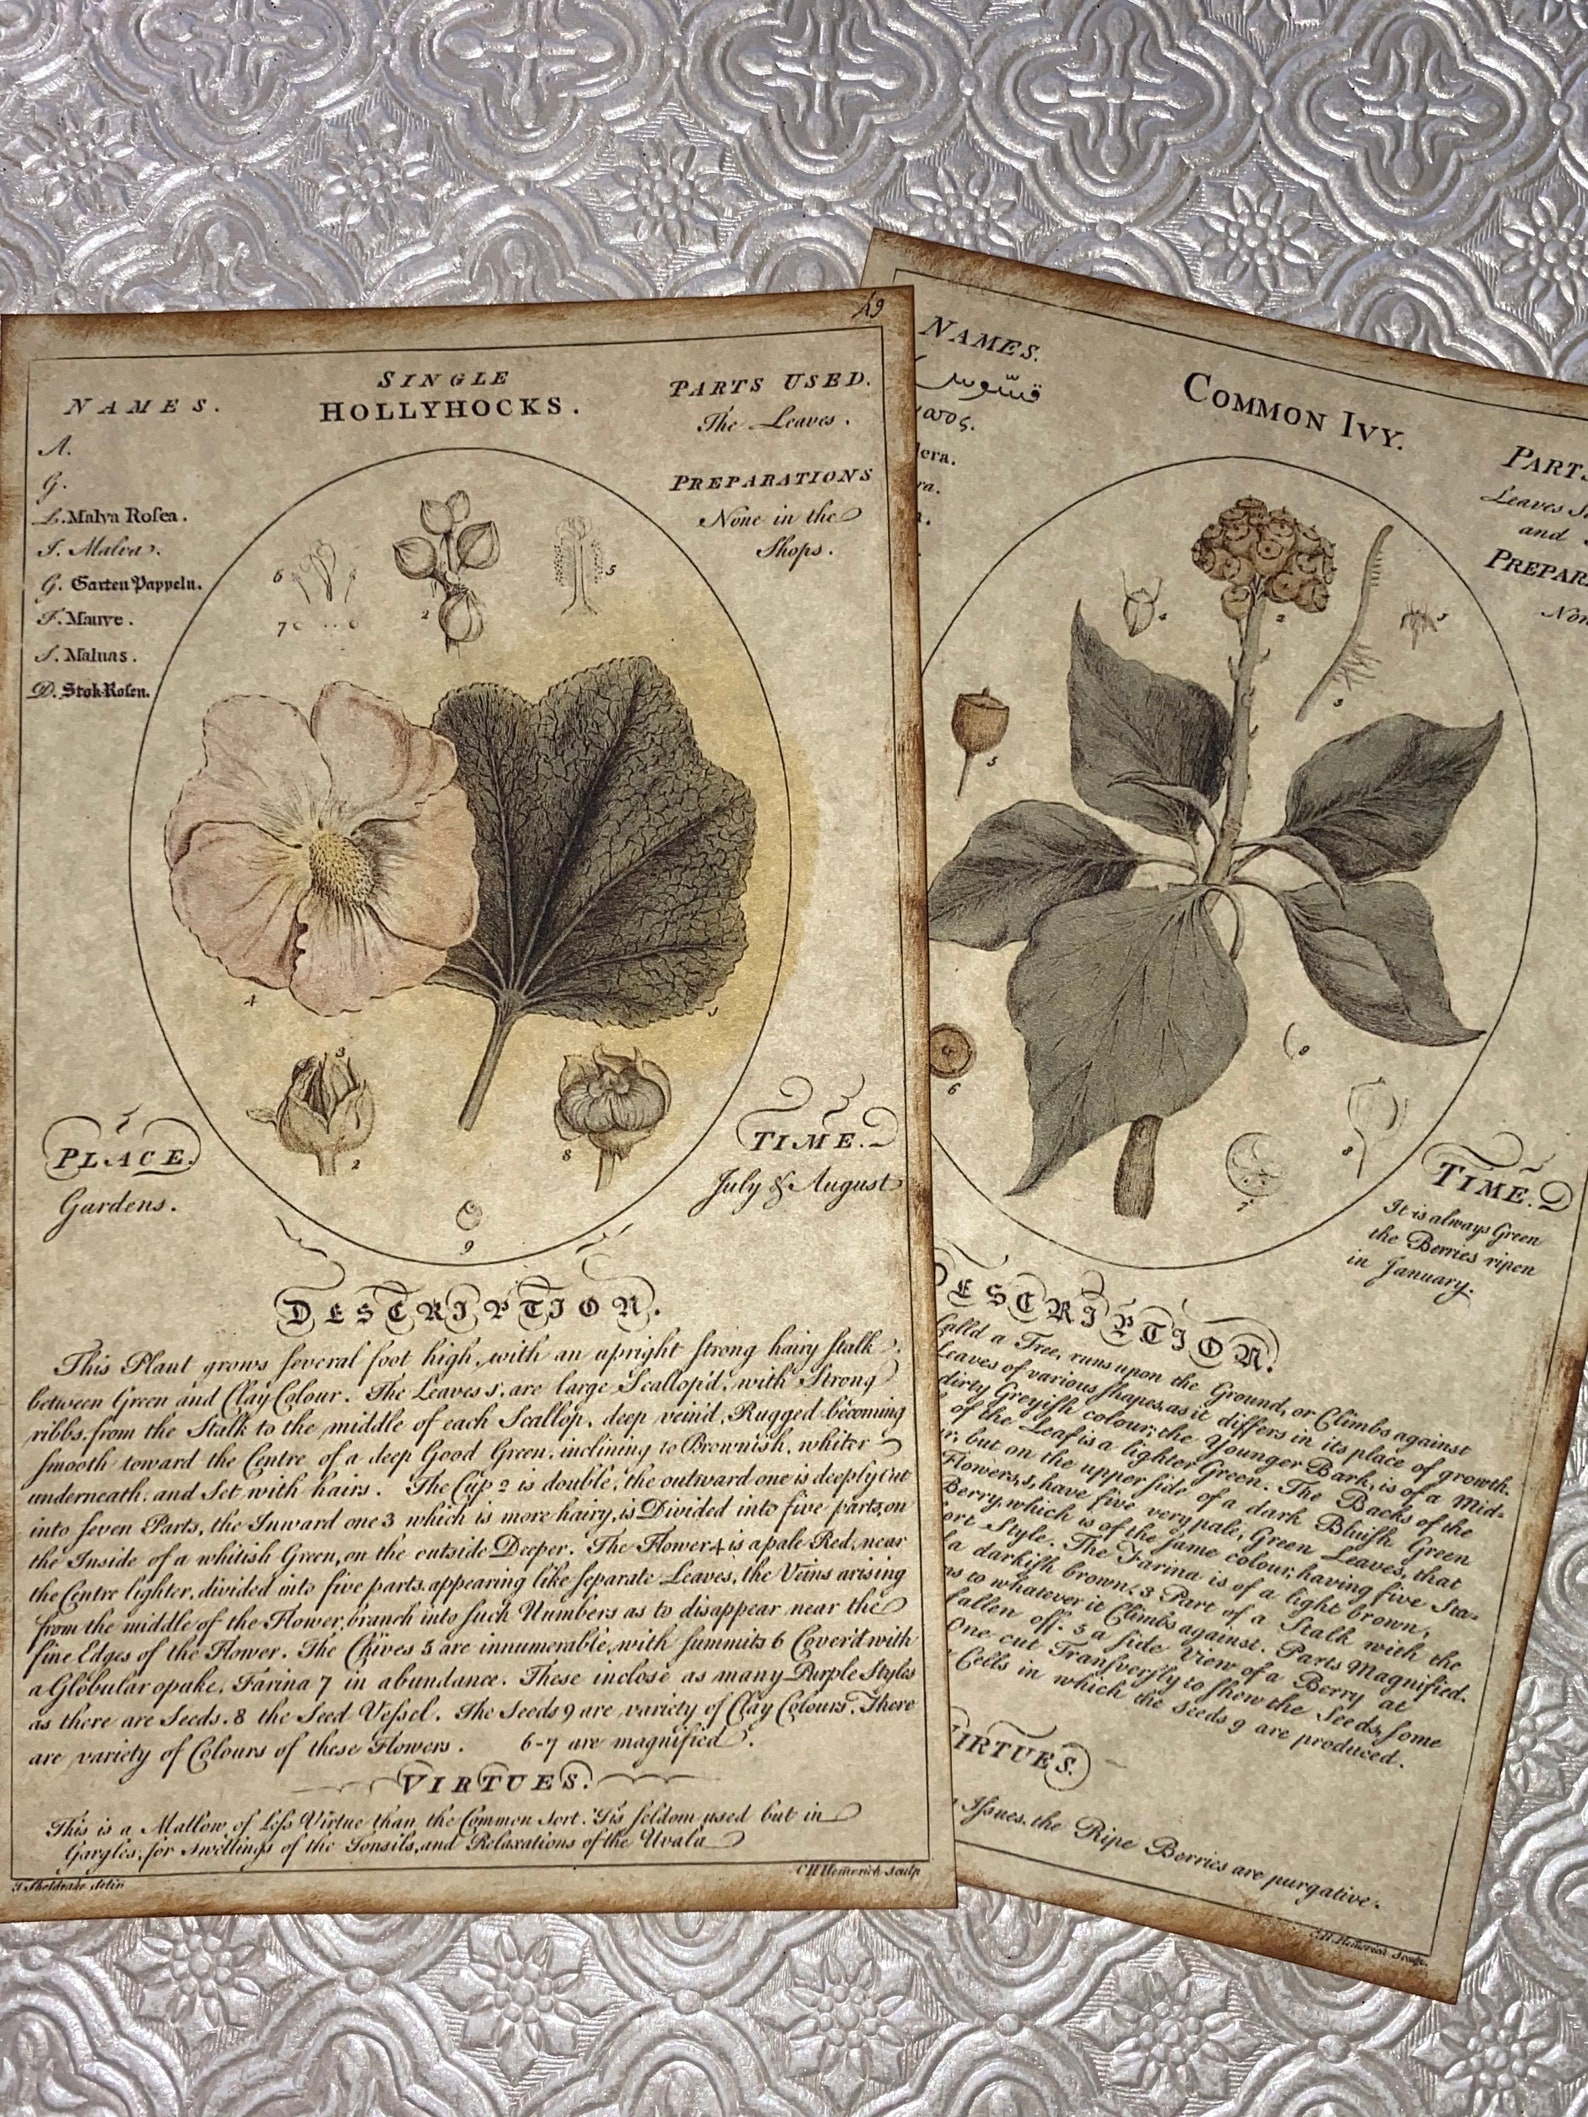 49
NAMES.
A.
G.
L. Malva Rosea.
I. Malva.
G. Garten Pappeln.
F. Mauve.
S. Maluas.
D. Stok-Rosen.
SINGLE
HOLLYHOCKS.
PARTS USED.
The Leaves.
PREPARATIONS
None in the
Shops.
6
7
2
5
4
3
2
8
9
PLACE.
Gardens.
TIME.
July & August
DESCRIPTION.
This Plant grows several foot high, with an upright strong hairy stalk
between Green and Clay Colour. The Leaves 1, are large Scallop'd, with Strong
ribbs, from the Stalk to the middle of each Scallop, deep vein'd, Rugged becoming
smooth toward the Centre of a deep Good Green, inclining to Brownish, whiter
underneath, and set with hairs. The Cup 2 is double, the outward one is deeply cut
into seven Parts, the Inward one 3 which is more hairy, is Divided into five parts, on
the Inside of a whitish Green, on the outside Deeper. The Flower 4 is a pale Red, near
the Centre lighter, divided into five parts, appearing like separate Leaves, the Veins arising
from the middle of the Flower, branch into such Numbers as to disappear near the
fine Edges of the Flower. The Chives 5 are innumerable, with summits 6 Cover'd with
a Globular opake, Farina 7 in abundance. These inclose as many Purple Styles
as there are Seeds. 8 the Seed Vessel. The Seeds 9 are variety of Clay Colours. There
are variety of Colours of these Flowers. 6-7 are magnified.
VIRTUES.
This is a Mallow, of Less Virtue than the Common sort. 'Tis seldom used but in
Gargles, for swellings of the Tonsils, and Relaxations of the Uvala
T. Sheldrake delin
C H Hemerich Sculp
NAMES.
قسّوس
COMMON IVY.
PART
Leaves
and
PREPAR
Non
4
2
3
5
6
8
7
TIME.
It is always Green
the Berries ripen
in January.
ESCRIPTION.
Call'd a Tree, runs upon the Ground, or Climbs against
Leaves of various shapes, as it differs in its place of growth.
dirty Greyish colour; the Younger Bark, is of a Mid-
of the Leaf is a lighter Green. The Backs of the
but on the upper side of a dark Bluish Green
Flowers, 1, have five very pale, Green Leaves, that
Berry, which is of the same colour, having five Sta-
ort Style. The Farina is of a light brown,
a darkish brown, 3 Part of a Stalk with the
as to whatever it Climbs against. Parts Magnified.
fallen off. 5 a side View of a Berry at
One cut Transversly to shew the Seeds, some
Cells in which the Seeds 9 are produced.
VIRTUES.
Issues, the Ripe Berries are purgative.
C.H. Hemerich Sculp.